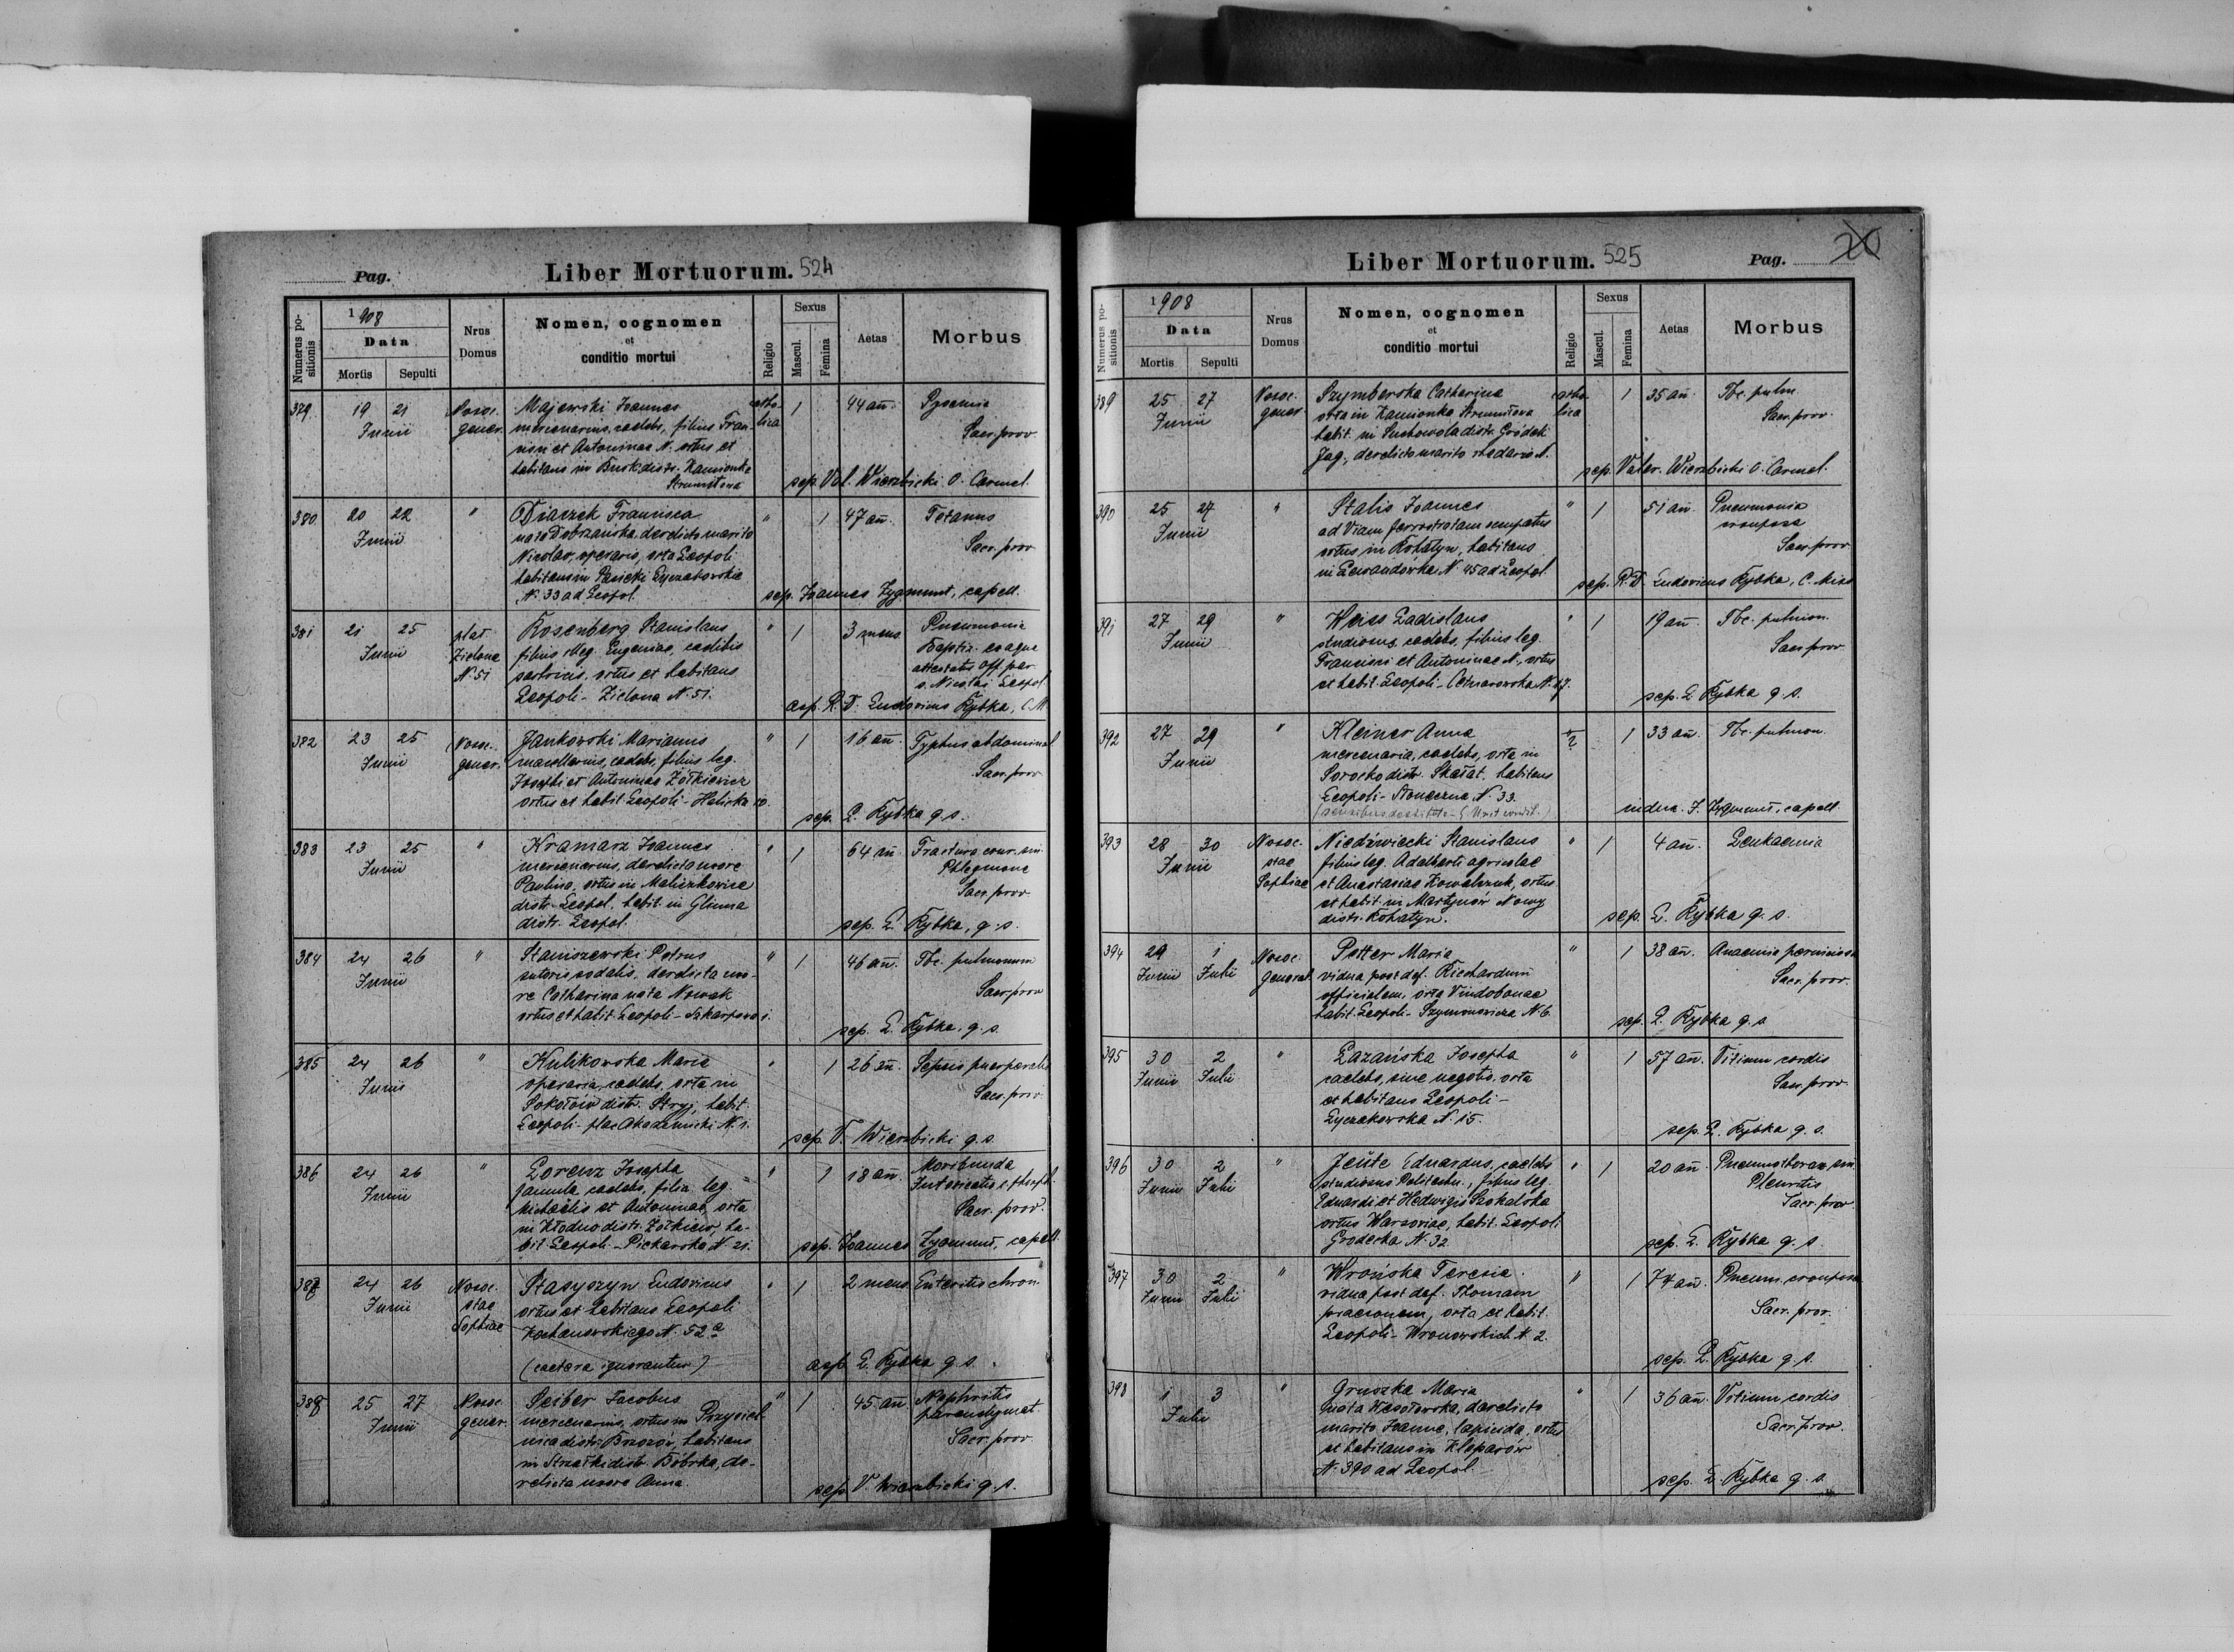 Pag. Liber Mortuorum. 524
Numerus positionis
1908
Data
Mortis Sepulti
Nrus Domus
Nomen, cognomen
et
conditio mortui
Religio
Sexus
Mascul. Femina
Aetas
Morbus
379 19 21 Nosoc. Majewski Joannes catho- 1 44 an̄. Pyaemia
Junii gener. mercenarius, caelebs, filius Fran- lica Sacr. prov.
cisci et Antoninae N. ortus et
habitans in Busk distr. Kamionka
Strumiłowa sep. Val. Wierzbicki O. Carmel.
380 20 22 " Diaczek Francisca " 1 47 an̄. Tetanus
Junii nata Dobrzańska, derelicto marito Sacr. prov.
Nicolao, operario, orta Leopoli
habitans in Pasieki Łyczakowskie
N. 33 ad Leopol. sep. Joannes Zygmunt, capell.
381 21 25 plat. Rosenberg Stanislaus " 1 3 mens. Pneumonia
Junii Zielona filius illeg. Eugeniae, caelibis Baptiz. ex aqua
N. 51 sartricis, ortus et habitans attestatio off. par.
Leopoli - Zielona N. 51. s. Nicolai Leopol.
asp. R. D. Ludovicus Rybka, C. M.
382 23 25 Nosoc. Jankowski Marianus " 1 16 an̄. Typhus abdominal.
Junii gener. macellarius, caelebs, filius leg. Sacr. prov.
Josephi et Antoninae Żółkiewicz
ortus et habit. Leopoli - Halicka 10.
sep. L. Rybka q. s.
383 23 25 " Kramarz Joannes " 1 64 an̄. Fractura crur. sin.
Junii mercenarius, derelicta uxore Phlegmone
Paulina, ortus in Malickowice Sacr. prov.
distr. Leopol. habit. in Glinna
distr. Leopol. sep. L. Rybka, q. s.
384 24 26 " Staniszewski Petrus " 1 46 an̄. Tbc. pulmonum
Junii sutoris sodalis, derelicta uxo- Sacr. prov
re Catharina nata Nowak
ortus et habit. Leopoli - Szkarpowa 1.
sep. L. Rybka, q. s.
385 24 26 " Kulikowska Maria " 1 26 an̄. Sepsis puerperalis
Junii operaria, caelebs, orta in Sacr. prov.
Sokołów distr. Stryj, habit.
Leopoli - plac Akademicki N. 1.
sep. V. Wierzbicki q. s.
386 24 26 " Lorenz Josepha " 1 18 an̄. Moribunda
Junii famula caelebs, filia leg. Intoxicatio c. phosph.
Michaëlis et Antoninae, orta Sacr. prov.
in Kłodno distr. Żółkiew, ha-
bit. Leopoli - Piekarska N. 21. sep. Joannes Zygmunt, capell.
387 24 26 Nosoc. Stasyszyn Ludovicus " 1 2 mens. Enteritis chron.
Junii stae ortus et habitans Leopoli
Sophiae Kochanowskiego N. 52a
(caetera ignorantur) asp. L. Rybka q. s.
388 25 27 Nosoc. Seiber Jacobus " 1 45 an̄. Nephritis
Junii gener. mercenarius, ortus in Przysiet- parenchymat.
nica distr. Brzozów, habitans Sacr. prov.
in Strzałki distr. Bóbrka, de-
relicta uxore Anna. sep. V. Wierzbicki q. s.
Liber Mortuorum. 525 Pag. 20
Numerus positionis
1908
Data
Mortis Sepulti
Nrus Domus
Nomen, cognomen
et
conditio mortui
Religio
Sexus
Mascul. Femina
Aetas
Morbus
389 25 27 Nosoc. Szymberska Catharina catho- 1 35 an̄. Tbc. pulm.
Junii gener. orta in Kamionka Strumiłowa lica Sacr. prov.
habit. in Suchowola distr. Gródek
Jag., derelicto marito rhedario N.
sep. Valer. Wierzbicki O. Carmel.
390 25 27 " Stalis Joannes " 1 51 an̄. Pneumonia
Junii ad Viam ferrostratam occupatus crouposa
ortus in Rohatyn, habitans Sacr. prov
in Lewandówka N. 45 ad Leopol.
sep. R. D. Ludovicus Rybka, C. Miss
391 27 29 " Weiss Ladislaus " 1 19 an̄. Tbc. pulmon.
Junii studiosus, caelebs, filius leg. Sacr. prov.
Francisci et Antoninae N., ortus
et habit. Leopoli - Cetnarowska N. 17.
sep. L. Rybka q. s.
392 27 29 " Kleiner Anna ? 1 33 an̄. Tbc. pulmon.
Junii mercenaria, caelebs, orta in
Sorocko distr. Skałat. habitans
Leopoli - Słoneczna N. 33.
(sensibus destituta - Unct condit.) indux. J. Zygmunt, capell.
393 28 30 Nosoc. Niedźwiecki Stanislaus " 1 4 an̄. Leukaemia
Junii stae filius leg. Adalberti agricolae
Sophiae et Anastasiae Kowalczuk, ortus
et habit. in Martynów Nowy
distr. Rohatyn. sep. L. Rybka q. s.
394 29 1 Nosoc. Potter Maria " 1 38 an̄. Anaemia perniciosa
Junii Julii general. vidua post def. Richardum Sacr. prov.
officialem, orta Vindobonae
habit. Leopoli - Szymonowicza N. 6.
sep. L. Rybka q. s.
395 30 2 " Łazańska Josepha " 1 57 an̄. Vitium cordis
Junii Julii caelebs, sine negotio, orta Sacr. prov.
et habitans Leopoli -
Łyczakowska N. 15.
sep. L. Rybka q. s.
396 30 2 " Jeute Eduardus, caelebs " 1 20 an̄. Pneumothorax sin.
Junii Julii studiosus Politechn., filius leg. Pleuritis
Eduardi et Hedwigis Szokalska Sacr. prov.
ortus Warsoviae, habit. Leopoli
Grodecka N. 32 sep. L. Rybka q. s.
397 30 2 " Wrońska Teresia " 1 74 an̄. Pneum. crouposa
Junii Julii vidua post def. Thomam Sacr. prov.
praeconem, orta et habit.
Leopoli - Wronowskich N. 2.
sep. L. Rybka q. s.
398 1 3 " Gruszka Maria " 1 36 an̄. Vitium cordis
Julii nata Wesołowska, derelicto Sacr. prov.
marito Joanne, lapicida, orta
et habitans in Kleparów
N. 390 ad Leopol.
sep. L. Rybka q. s.